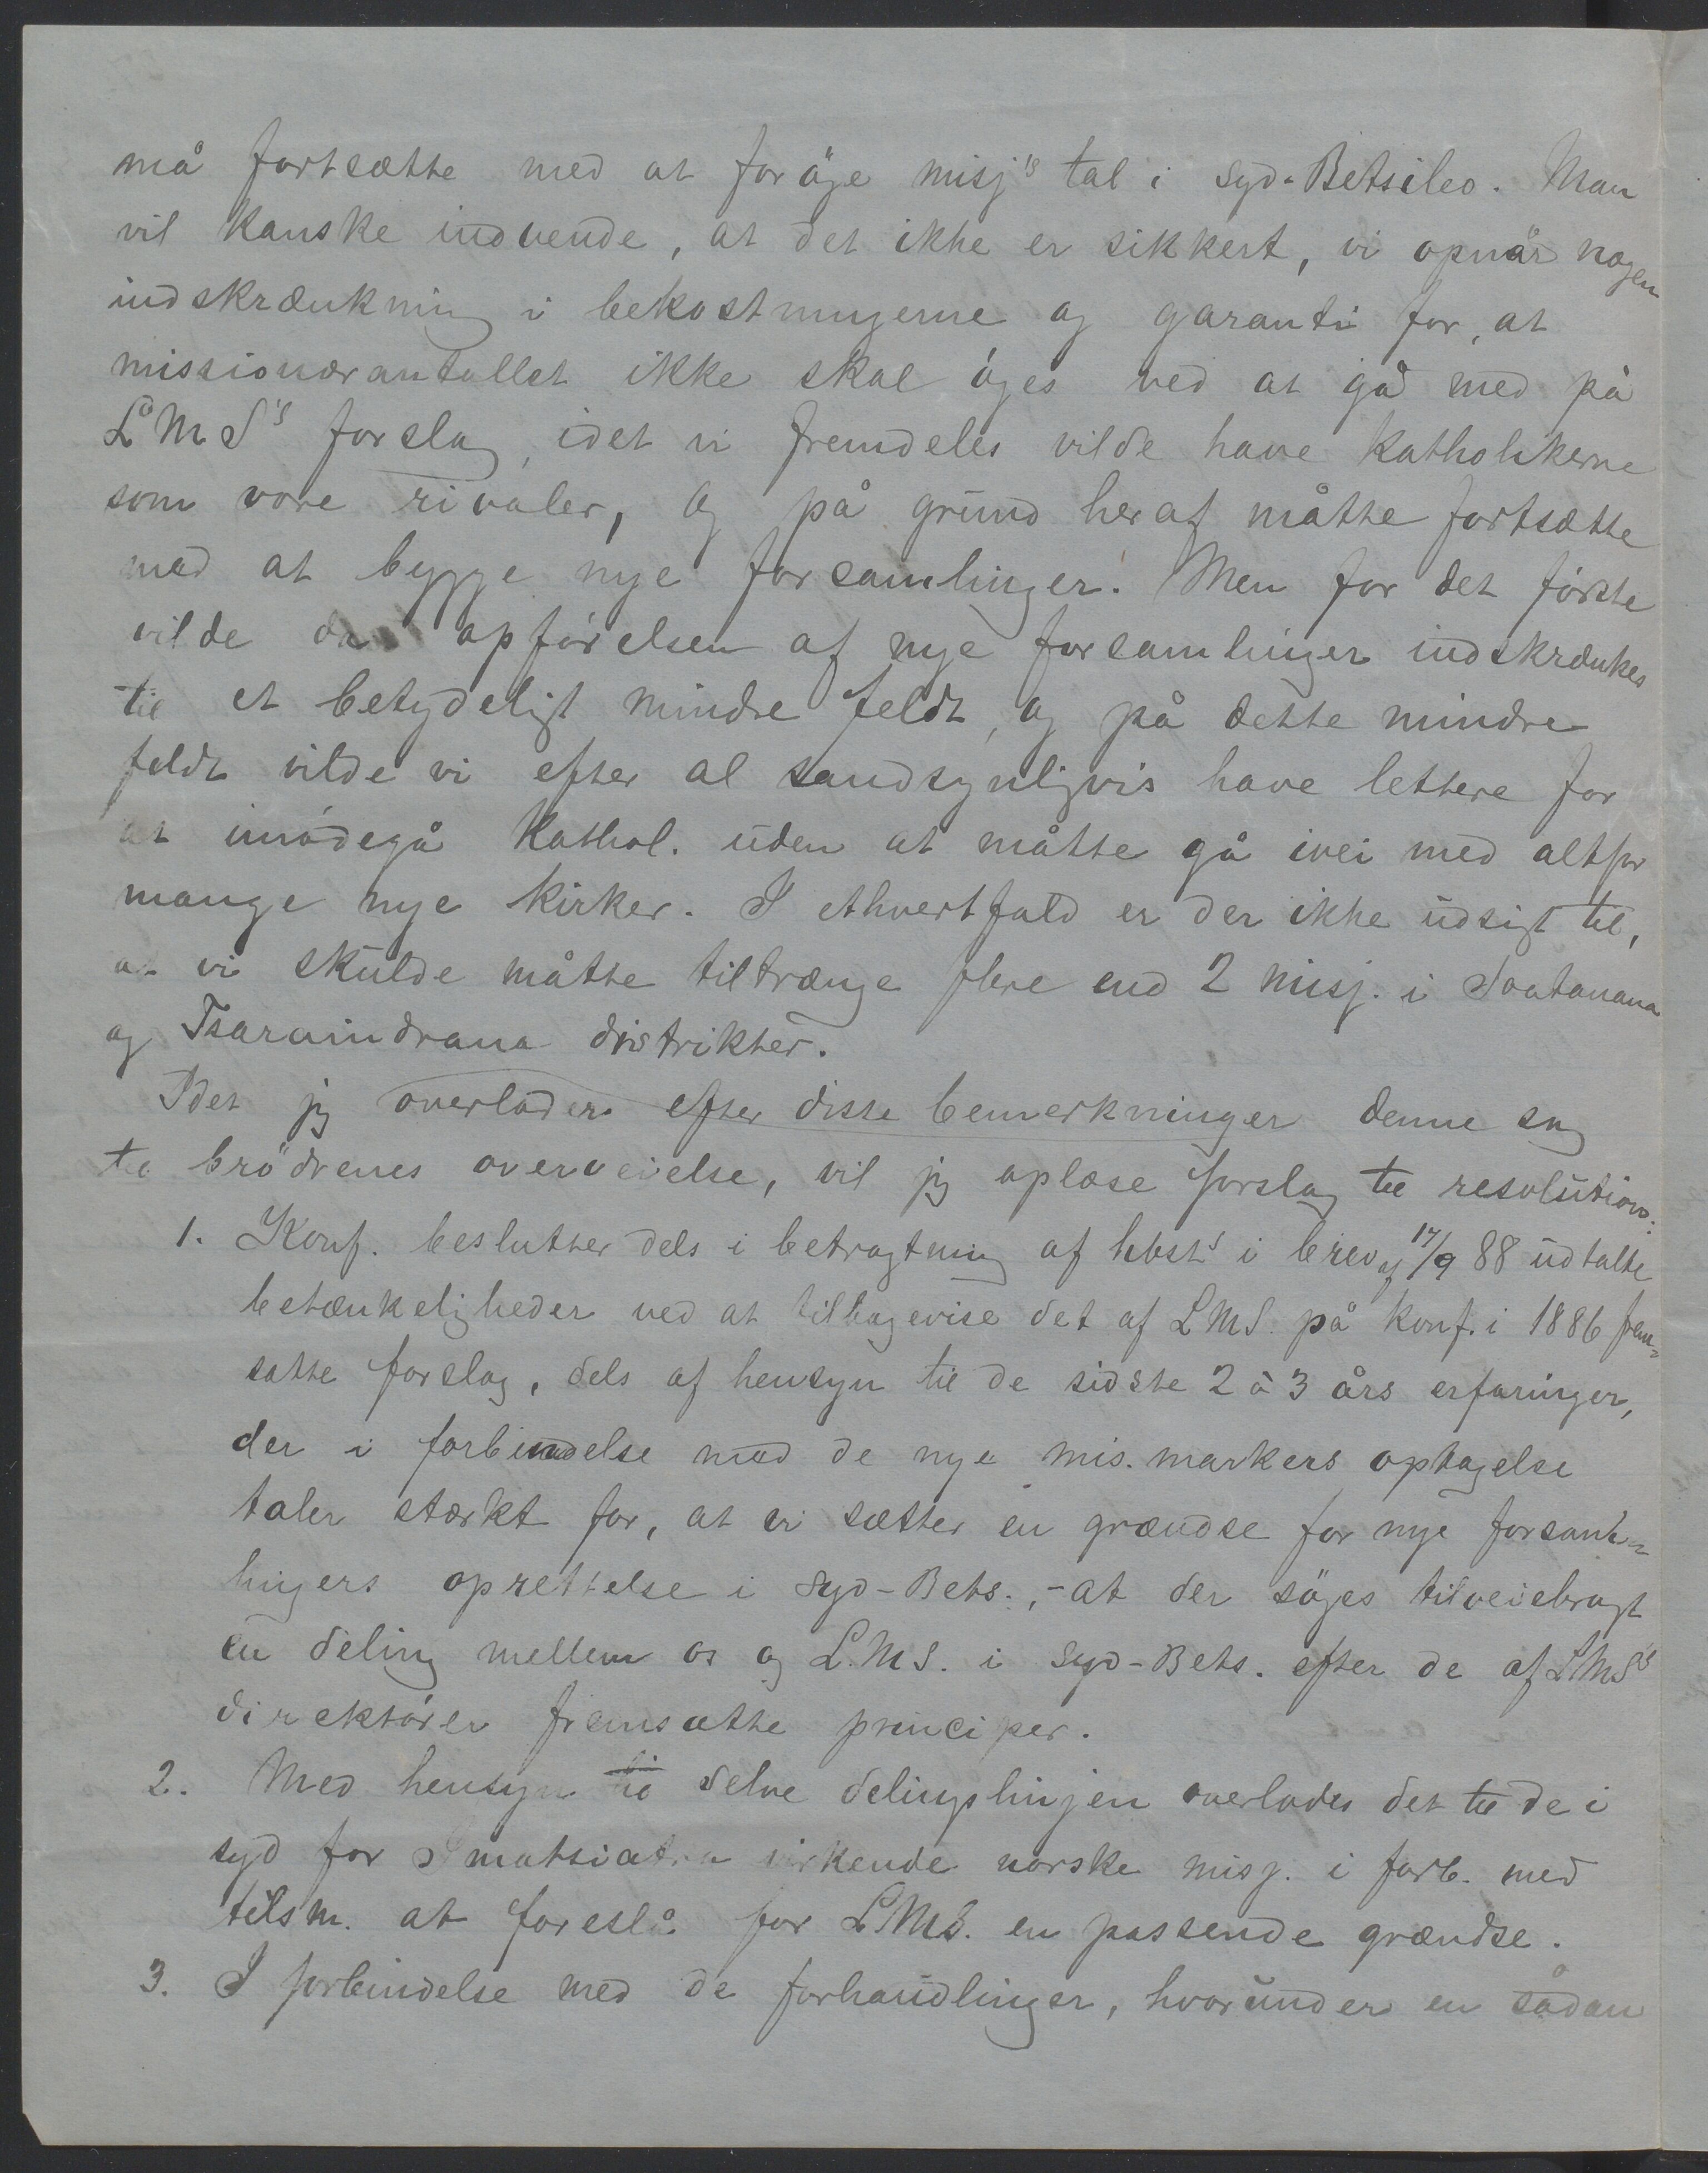 må fortsætte med at foröge misj's tal i Syd-Betsileo. Man
vil kanske indvende, at det ikke er sikkert, vi opnår nogen
indskrænkning i bekostningerne og garanti for, at
missionærantallet ikke skal öges ved at gå med på
LMS's forslag, idet vi fremdeles vilde have katholikerne
som vore rivaler, og på grund heraf måtte fortsætte
med at bygge nye forsamlinger. Men for det förste
vilde da opförelsen af nye forsamlinger indskrænkes
til et betydeligt mindre feldt, og på dette mindre
feldt vilde vi efter al sandsynligvis have lettere for
at imödegå Kathol. uden at måtte gå ivei med altfor
mange nye kirker. I ethvertfald er der ikke udsigt til,
at vi skulde måtte tiltrænge flere end 2 misj. i Soatanana
og Tsaraindrana distrikter.
Idet jeg overlader efter disse bemerkninger denne sag
til brödrenes overveielse, vil jeg oplæse forslag til resolution:
1. Konf. beslutter dels i betragtning af hbst's i brev af 17/9 88 udtalte
betænkeligheder ved at tilbagevise det af LMS. på konf. i 1886 frem-
satte forslag, dels af hensyn til de sidste 2 à 3 års erfaringer,
der i forbindelse med de nye mis. markers optagelse
taler stærkt for, at vi sætter en grændse for nye forsam-
lingers oprettelse i Syd-Bets., - at der söges tilveiebragt
en deling mellem os og L.M.S. i Syd-Bets. efter de af LMS's
direktörer fremsatte principer.
2. Med hensyn til selve delingslinjen overlades det til de i
syd for Imatsiatra virkende norske misj. i forb. med
tilsm. at foreslå for LMS. en passende grændse.
3. I forbindelse med de forhandlinger, hvorunder en sådan